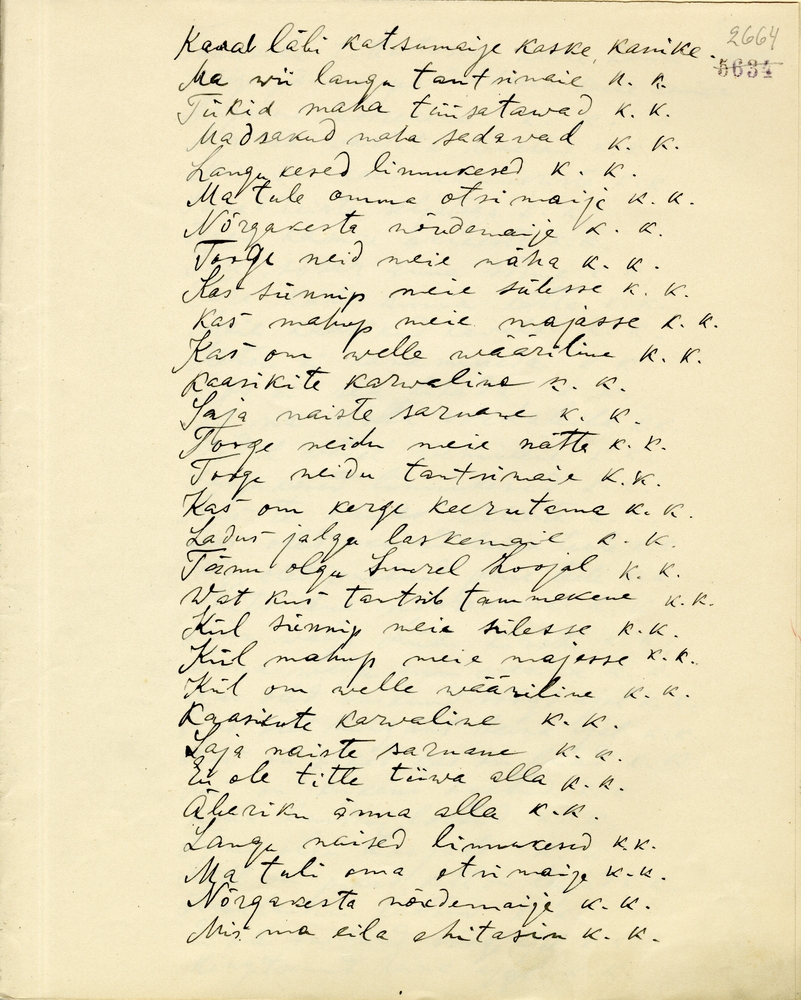 2664
5634
Kaaal läbi katsumaije kaske, kanike.
Ma wii langu tantsimaie k. k.
Tükid maha tüüsatawad k. k.
Madsakud maha sadavad k. k.
Langu kesed linnukesed k. k.
Ma tule omma otsimaije k. k.
Nõrgakesta nõudemaije k. k.
Tooge neid meie näha k. k.
Kas sünnip meie sülesse k. k.
Kas mahup meie majasse k. k.
Kas om welle wääriline k. k.
Kaasikite karwaline k. k.
Saja naiste sarnane k. k.
Tooge neidu meie nätta k. k.
Tooge neidu tantsimaie k. k.
Kas om kerge keerutama k. k.
Ladus jalga laskemaie k. k.
Tänu olgu Suurel Loojal k. k.
Wat kus tantsib tammekene k. k.
Kül sünnip meie sülesse k. k.
Kül mahup meie majasse k. k.
Kül om welle wääriline k. k.
Kaasikute karwaline k. k.
Saja naiste sarnane k. k.
Ei ole titte tiiwa alla k. k.
Äberiku änna alla k. k.
Langu naised linnukesed k. k.
Ma tuli oma otsimaije k. k.
Nõrgakesta nõudemaije k. k.
Mis ma eila ehitasin k. k.